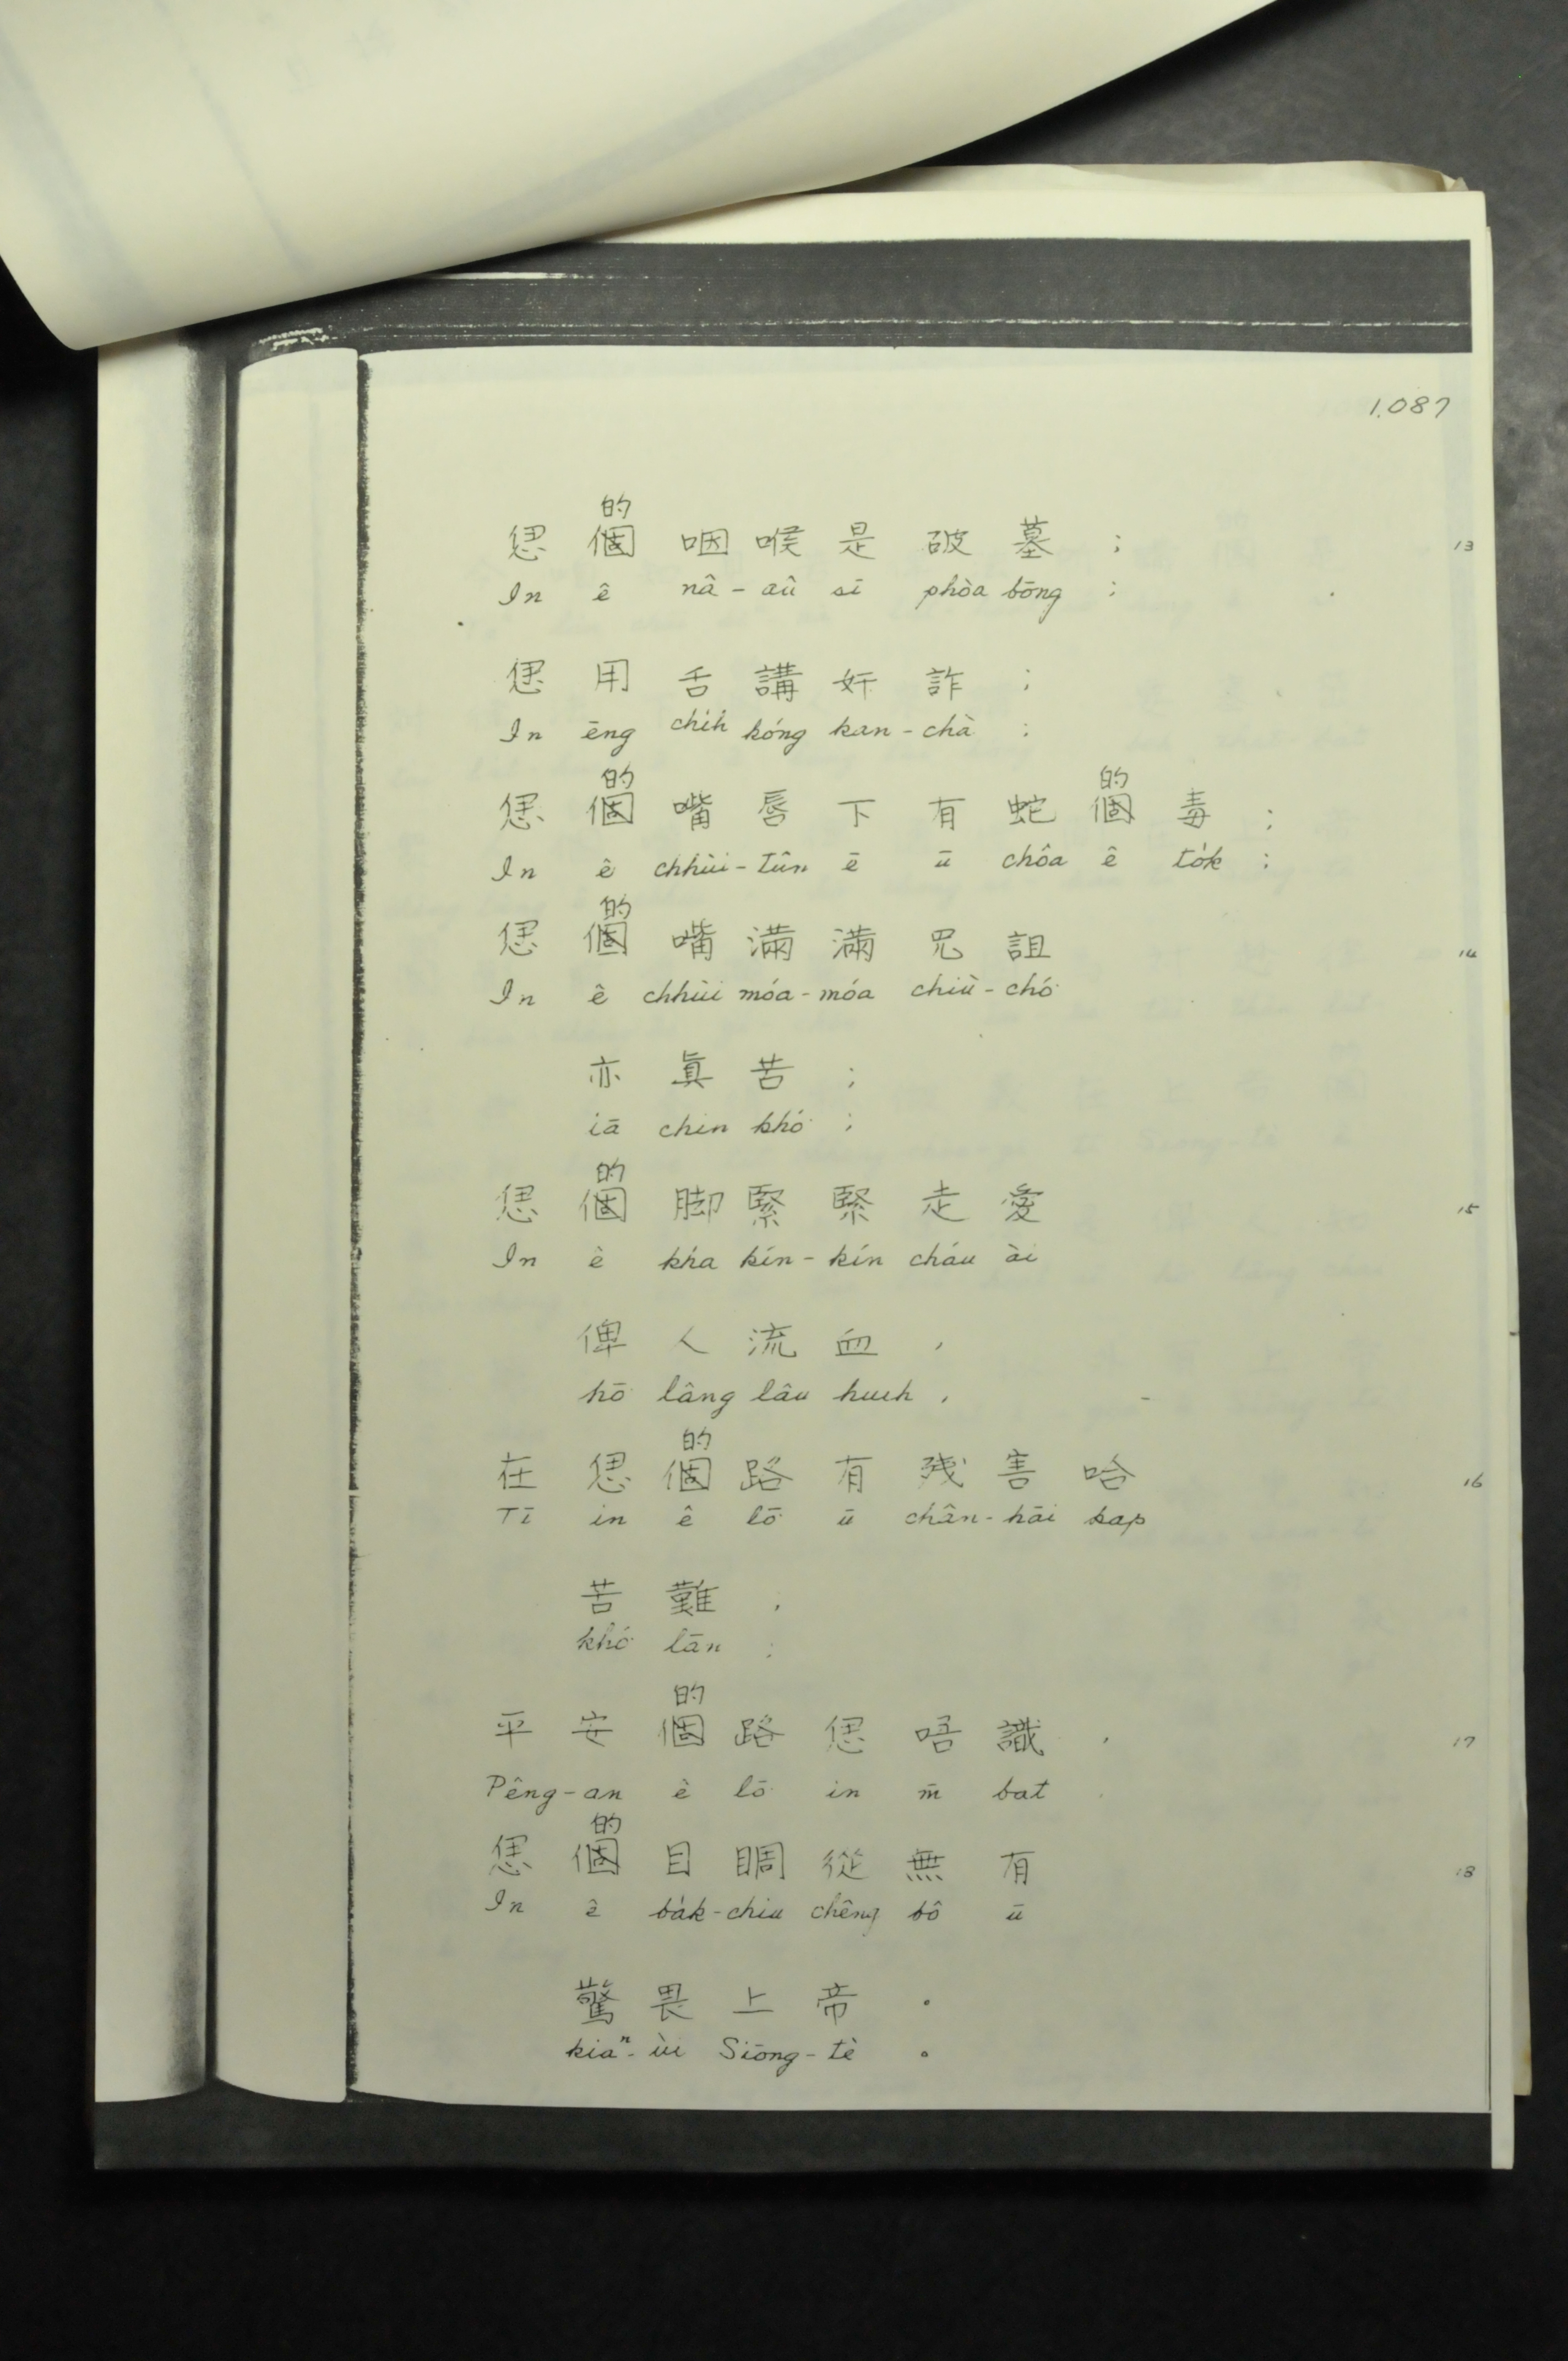 1.087
的
𪜶 個 咽 喉 是 破 墓 ; 13
In ê nâ - aû sī phòa bōng ;
𪜶 用 舌 講 奸 詐 ;
In ēng chi̍h kóng kan - chà ;
的 的
𪜶 個 嘴 唇 下 有 蛇 個 毒 ;
In ê chhùi - tûn ē ū chôa ê to̍k ;
的
𪜶 個 嘴 滿 滿 咒 詛 14
In ê chhùi móa - móa chiù - chó͘
亦 眞 苦 ;
iā chin khó͘ ;
的
𪜶 個 脚 緊 緊 走 愛 15
In ê kha kín - kín cháu ài
俾 人 流 血 ,
hō͘ lâng lâu huih ,
的
在 𪜶 個 路 有 残 害 哈 16
Tī in ê lō͘ ū chân - hāi kap
苦 難 ;
khó͘ lān ;
的
平 安 個 路 𪜶 唔 識 , 17
Pêng - an ê lō͘ in m̄ bat ,
的
𪜶 個 目 睭 從 無 有 18
In ê ba̍k - chiu chêng bô ū
驚 畏 上 帝 。
kiaⁿ - ùi Siōng - tè 。